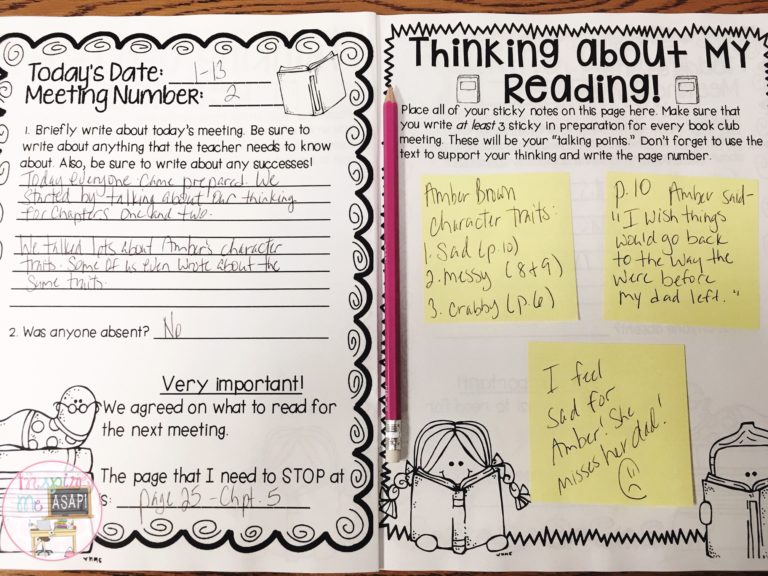 Today's Date: 1-13
Meeting Number: 2
1. Briefly write about today's meeting. Be sure to
write about anything that the teacher needs to know
about. Also, be sure to write about any successes!
Today everyone came prepared. We
started by talking about our thinking
for Chapters One and two.
We talked lots about Amber's character
traits. Some of us even wrote about the
same traits.
2. Was anyone absent? No
Very important!
We agreed on what to read for
the next meeting.
The page that I need to STOP at
s: page 25 - Chpt. 5
Inspire
Me
ASAP!
Thinking About MY
Reading!
Place all of your sticky notes on this page here. Make sure that
you write at least 3 sticky in preparation for every book club
meeting. These will be your "talking points." Don't forget to use the
text to support your thinking and write the page number.
Amber Brown
Character traits:
1. Sad (p.10)
2. messy (8+9)
3. crabby (p.6)
p. 10 Amber said-
"I wish things
would go back
to the way the
were before
my dad left."
I feel
sad for
Amber! She
misses her dad!